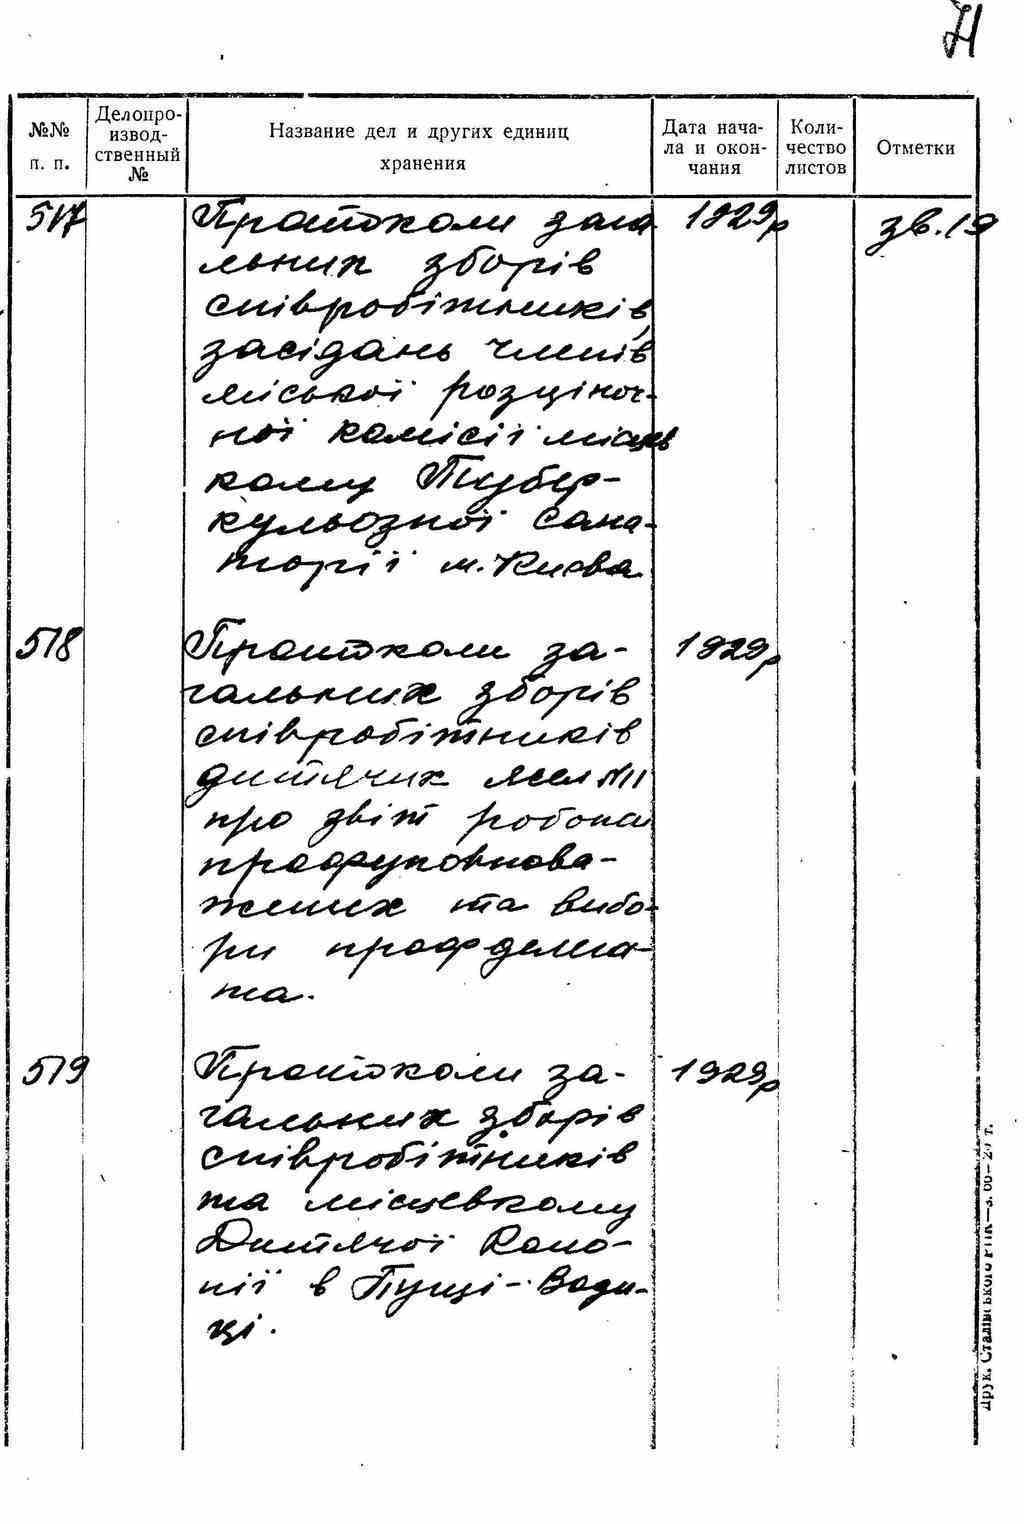 71
№№ п. п.
Делопроизвод-ственный №
Название дел и других единиц хранения
Дата нача-ла и окон-чания
Коли-чество листов
Отметки
517 Протоколи зага 1929р зв.19
льних зборів
співробітників,
засідань членів
міської розціноч-
ної комісії місцев
кому Тубер-
кульозної сана-
торії м. Києва
518 Протоколи за- 1929р
гальних зборів
співробітників
дитячих ясел №11
про звіт робота
профуповнова-
жених та вибо-
ри профделега-
та.
519 Протоколи за- 1929р
гальних зборів
співробітників
та місцевкому
Дитячої Коло-
нії в Пущі-Води-
ці.
Друк. Сталінського